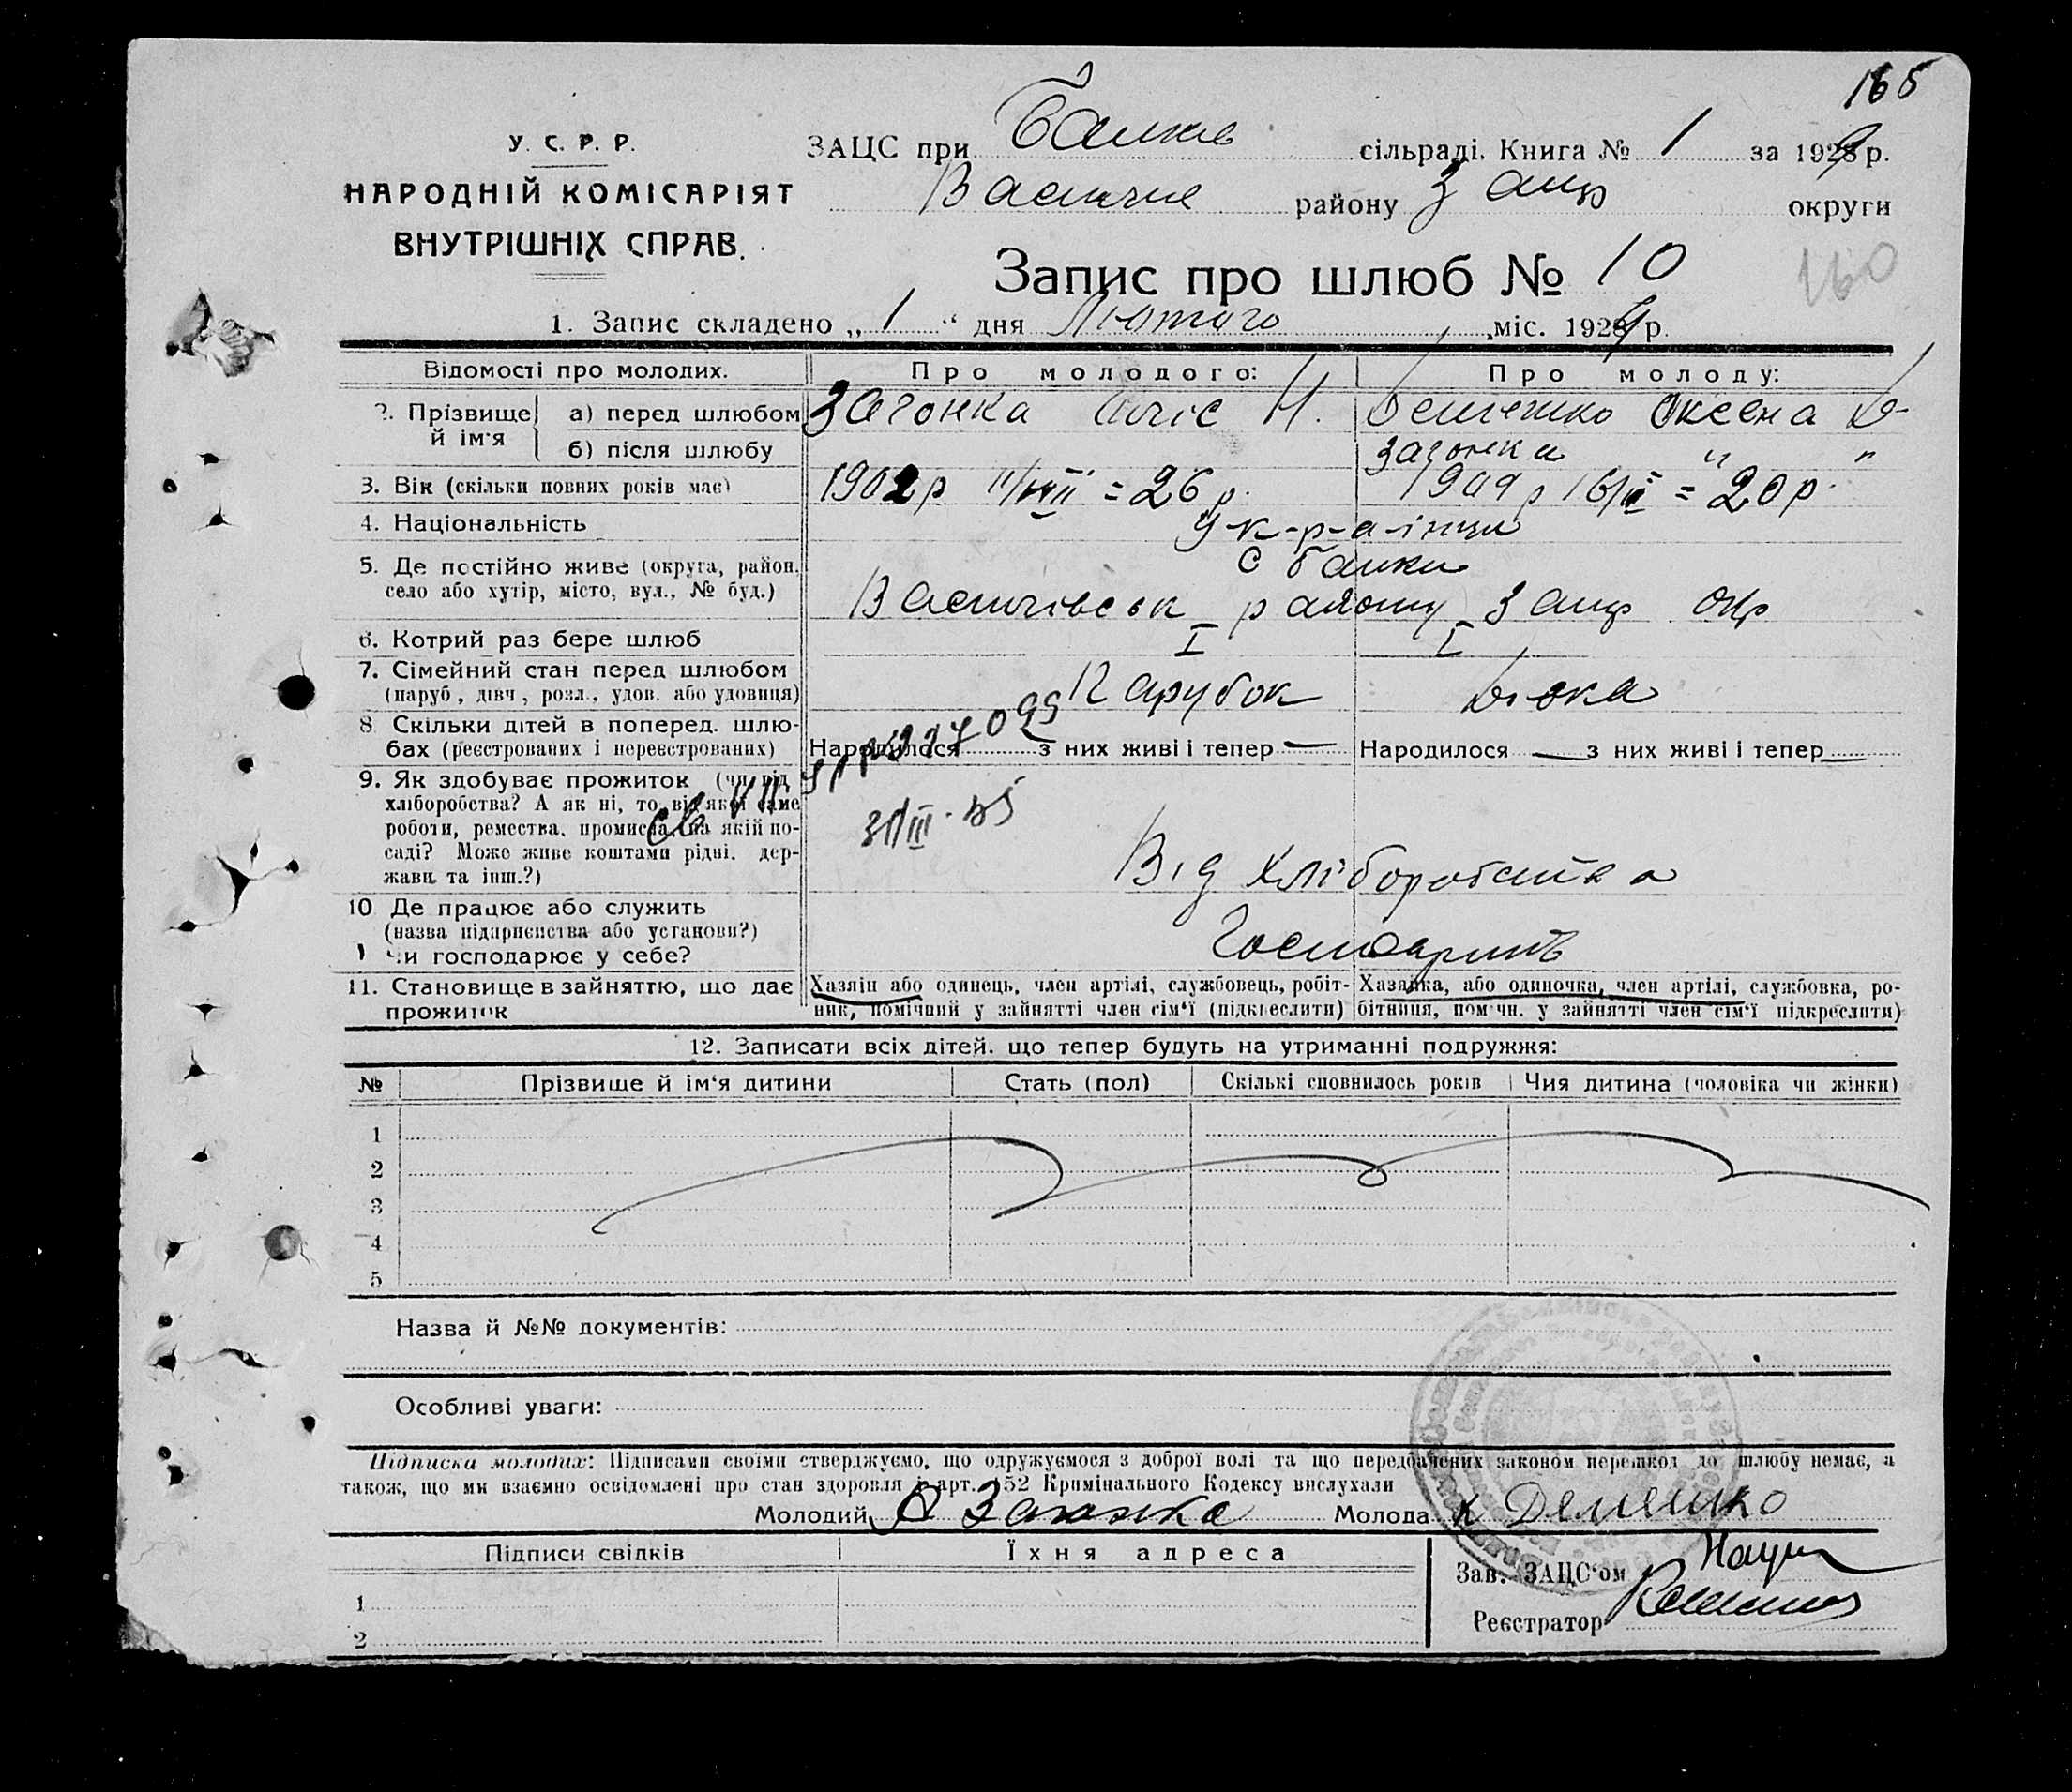 165
У. С. Р. Р.
НАРОДНІЙ КОМІСАРІЯТ
ВНУТРІШНІХ СПРАВ.
ЗАЦС при Балків сільраді. Книга № 1 за 1929 р.
району Запор округи
160
Запис про шлюб № 10
1. Запис складено „ 1 “ дня Лютого міс. 1929 р.
Відомості про молодих. Про молодого: Про молоду:
2. Прізвище й ім'я а) перед шлюбом Загонка Н. Демешко Оксена Д
б) після шлюбу Загонка " "
3. Вік (скільки повних років має) 1902 р = 26 р. 1909 р = 20 р.
4. Національність У-к-р-а-їнци
5. Де постійно живе (округа, район, село або хутір, місто, вул., № буд.) с Балки
Василівськ району Запор окр
6. Котрий раз бере шлюб I I
7. Сімейний стан перед шлюбом Парубок Дівка
(паруб., дівч., розл., удов. або удовиця)
8. Скільки дітей в поперед. шлю-
бах (реєстрованих і нереєстрованих) Народилося з них живі і тепер — Народилося — з них живі і тепер —
9. Як здобуває прожиток (чи від
хліборобства? А як ні, то від якої саме
роботи, ремества, промисла, на якій по-
саді? Може живе коштами рідні, дер-
жави та інш.?) Від хліборобства
31/III
10 Де працює або служить
(назва підприємства або установи?)
Чи господарює у себе? Господарить
11. Становище в зайняттю, що дає
прожиток
Хазяїн або одинець, член артілі, службовець, робіт-
ник, помічний у зайнятті член сім'ї (підкреслити)
Хазяйка, або одиночка, член артілі, службовка, ро-
бітниця, пом чн. у зайнятті член сім'ї підкреслити)
12. Записати всіх дітей, що тепер будуть на утриманні подружжя:
№ Прізвище й ім'я дитини Стать (пол) Скількі сповнилось років Чия дитина (чоловіка чи жінки)
1
2
3
4
5
Назва й №№ документів:
Особливі уваги:
Підписка молодих: Підписами своїми стверджуємо, що одружуємося з доброї волі та що передбачених законом перешкод до шлюбу немає, а
також, що ми взаємно освідомлені про стан здоровля і арт. 152 Кримінального Кодексу вислухали
Молодий Загонка Молода Демешко
Підписи свідків Їхня адреса
Зав. ЗАЦС'ом
1
Реєстратор
2